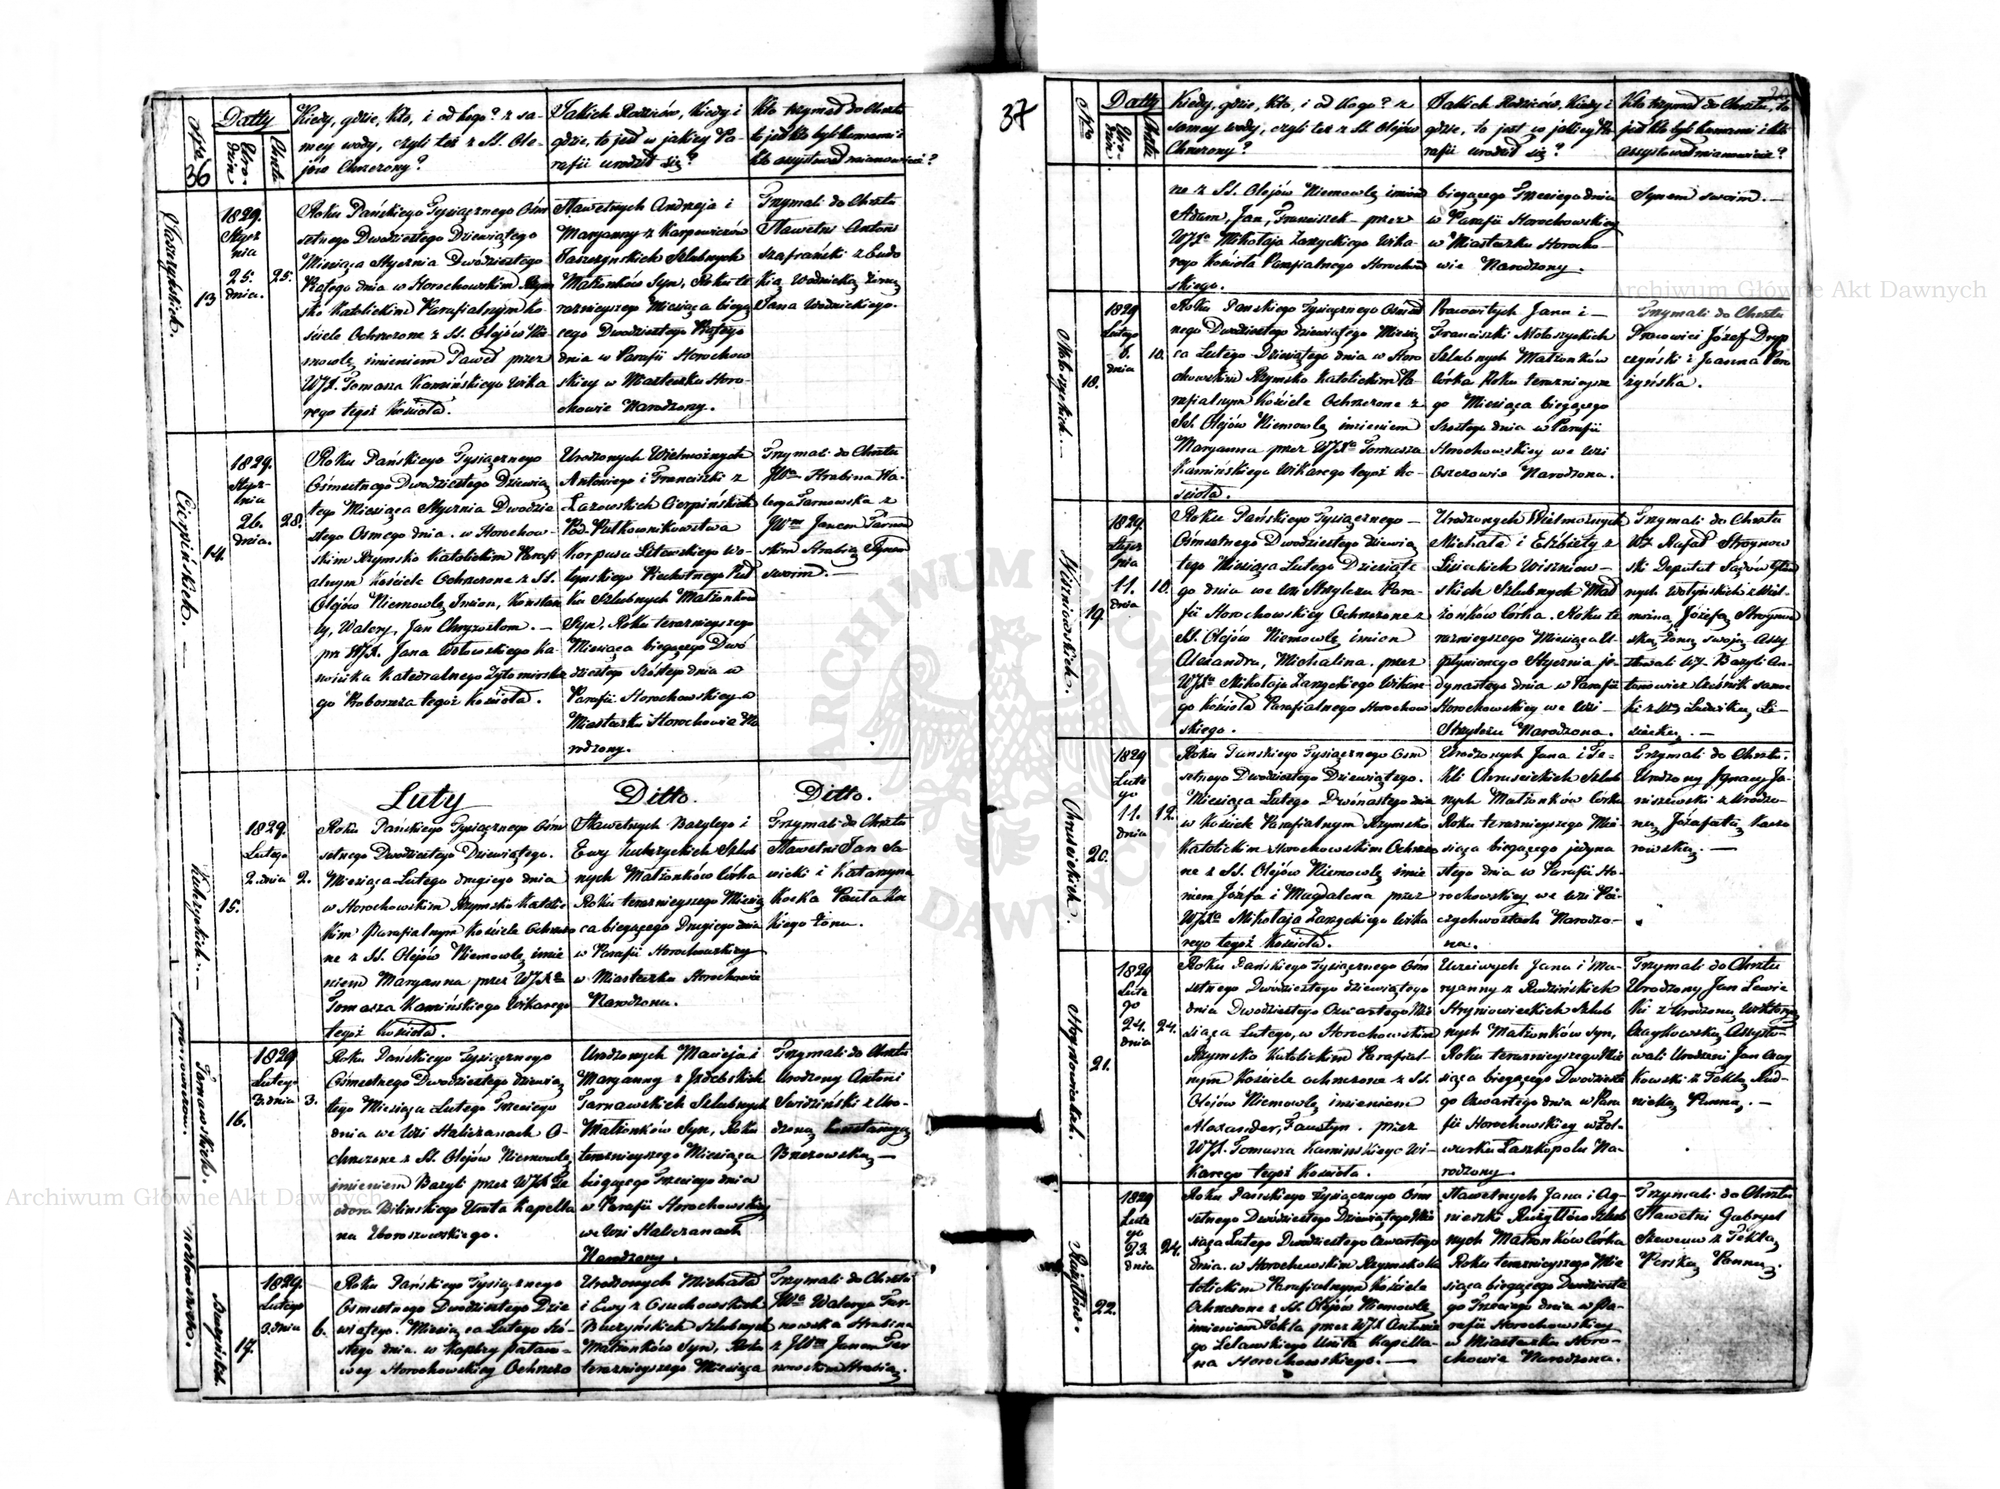 36
Nro
Datty
Uro-
dzin
Chrztu
Kiedy, gdzie, kto, i od kogo? z sa-
mey wody, czyli też z SS. Ole-
jów Chrzczony?
Jakich Rodziców, Kiedy i
gdzie, to jest w jakiey Pa-
rafii urodził się?
Kto trzymał do Chrztu
to jest kto byli kumami i
kto assystował mianowicie?
13
1829.
Stycz
nia
25.
dnia.
25.
Roku Pańskiego Tysiącznego Ośm
setnego Dwódziestego Dziewiątego
Miesiąca Stycznia Dwódziestego
Piątego dnia w Horochowskim Rzym
sko Katolickim Parafialnym ko-
ściele Ochrzczone z SS. Olejów Nie
mowlę imieniem Paweł przez
WJX. Tomasza Kamińskiego Wika
rego tegoż Kościoła.
Sławetnych Andrzeja i
Maryanny z Karpowiczów
Szlubnych
Małżonków Syn, Roku te
raznieyszego Miesiąca bieżą
cego Dwódziestego Piątego
dnia w Parafii Horochow
skiey w Miasteczku Horo-
chowie Narodzony.
Trzymali do Chrztu
Sławetni Antoni
Szafrański z Ludo
wiką Wodnicką żoną
Jana Wodnickiego.
Cierpińskich.
14.
1829.
Stycz-
nia
26.
dnia.
28.
Roku Pańskiego Tysiącznego
Ośmsetnego Dwódziestego Dziewią
tego Miesiąca Stycznia Dwódzie
stego Osmego dnia. w Horochow-
skim Rzymsko Katolickim Parafi
alnym Kościele Ochrzczone z SS.
Olejów Niemowlę Imion, Konstan
ty, Walery, Jan Chryzostom. —
prz WJX. Jana Ka-
nonika Katedralnego Żytomirskie
go Proboszcza tegoż Kościoła.
Urodzonych Wielmożnych
Antoniego i Franciszki z
Łazowskich Cierpińskich
Pod Pułkownikowstwa
Korpusu Litewskiego Wo-
łyńskiego Piechotnego Puł
ku Szlubnych Małżonków
Syn, Roku teraznieyszego
Miesiąca bieżącego Dwó
dziestego Szóstego dnia w
Parafii Horochowskiey w
Miasteczku Horochowie Na
rodzony.
Trzymali do Chrztu
JWa Hrabina Wa-
lerya Tarnowska z
JWm Janem Tarnow
skim Hrabią Synem
swoim. —
Luty
Ditto.
Ditto.
15.
1829.
Lutego
2. dnia
2.
Roku Pańskiego Tysiącznego Ośm
setnego Dwódziestego Dziewiątego.
Miesiąca Lutego drugiego dnia
w Horochowskim Rzymsko Katolic
kim Parafialnym Kościele Ochrzczo
ne z SS. Olejów Niemowlę imie
niem Maryanna przez WJXa
Tomasza Kamińskiego Wikarego
tegoż Kościoła.
Sławetnych Bazylego i
Ewy Kulczyckich Szlub
nych Małżonków Córka
Roku teraznieyszego Miesią
ca bieżącego Drugiego dnia
w Parafii Horochowskiey
w Miasteczku Horochowie
Narodzona.
Trzymali do Chrztu
Sławetni Jan Sa-
wicki i Katarzyna
żona.
Tarnawskich.
16.
1829
Lutego
3. dnia
3.
Roku Pańskiego Tysiącznego
Ośmsetnego Dwódziestego dziewią
tego Miesiąca Lutego Trzeciego
dnia we Wsi Haliczanach O-
chrzczone z SS. Olejów Niemowlę
imieniem Bazyli przez WJX Te
odora Bilińskiego Unita Kapella
na Zboroszowskiego.
Urodzonych Macieja i
Maryanny z Izdebskich
Tarnawskich Szlubnych
Małżonków Syn, Roku
teraznieyszego Miesiąca
bieżącego Trzeciego dnia
w Parafii Horochowskiey
we Wsi Haliczanach
Narodzony.
Trzymali do Chrztu
Urodzony Antoni
Swidziński z Uro-
dzoną Konstancyą
Brzozowską —
17.
1829.
Lutego
3. dnia
6.
Roku Pańskiego Tysiącznego
Ośmsetnego Dwódziestego Dzie
wiątego. Miesiąca Lutego Szó-
stego dnia. w Kaplicy pałaco-
wey Horochowskiey Ochrzczo
Urodzonych Michała
i Ewy z Osuchowskich
Buczyńskich Szlubnych
Małżonków Syn, Roku
teraznieyszego Miesiąca
Trzymali do Chrztu
JWa Walerya Tar-
nowska Hrabina
z JWm Janem Tar
nowskim Hrabią.
37
Nro
Datty
Uro-
dzin
Chrztu
Kiedy, gdzie, kto, i od kogo? z
samey wody, czyli też z SS. Olejów
Chrzczony?
Jakich Rodziców, Kiedy i
gdzie, to jest w jakiey Pa-
rafii urodził się?
Kto trzymał do Chrztu, to
jest kto byli kumami i kto
assystował mianowicie?
ne z SS. Olejów Niemowlę imion
Adam, Jan, Franciszek przez
WJXa Mikołaja Zarzyckiego Wika-
rego Kościoła Parafialnego Horochow
skiego.
bieżącego Trzeciego dnia
w Parafii Horochowskiey
w Miasteczku Horocho-
wie Narodzony.
Synem swoim. —
18.
1829
Lutego
6.
dnia
10.
Roku Pańskiego Tysiącznego Ośmset
nego Dwódziestego dziewiątego Miesią
ca Lutego Dziesiątego dnia w Horo
chowskim Rzymsko Katolickim Pa-
rafialnym Kościele Ochrzczone z
SS. Olejów Niemowlę imieniem
Maryanna przez WJXa Tomasza
Kamińskiego Wikarego tegoż Ko-
ścioła.
Pracowitych Jana i —
Franciszki Mołoszyckich
Szlubnych Małżonków
Córka Roku teraznieysze
go Miesiąca bieżącego
Szóstego dnia w Parafii
Horochowskiey we Wsi
Oszczowie Narodzona.
Trzymali do Chrztu
Pracowici Józef Drop
czyński i Joanna Por
żyńska.
Wiszniowskich.
19.
1829.
Stycz
nia
11.
dnia
10.
Roku Pańskiego Tysiącznego —
Ośmsetnego Dwódziestego dziewią
tego Miesiąca Lutego Dziesiąte
go dnia we Wsi Strylczu Para-
fii Horochowskiey Ochrzczone z
SS. Olejów Niemowlę imion
Alexandra, Michalina. przez
WJXa Mikołaja Zarzyckiego Wikare
go Kościoła Parafialnego Horochow
skiego.
Urodzonych Wielmożnych
Michała i Elżbiety z
Lisieckich Wiszniow-
skich Szlubnych Mał
żonków Córka. Roku te
raznieyszego Miesiąca u-
płynionego Stycznia je-
dynastego dnia w Parafii
Horochowskiey we Wsi —
Strylczu Narodzona.
Trzymali do Chrztu
WJ Rafał Stroynow
ski Deputat Sądów Głów
nych Wołyńskich z Wiel-
możną Józefą Stroynow
ską, żoną swoją Assy
stowali WJ. Bazyli An-
tonowicz Cześnik
ki z Wą Ludwiką Li-
siecką. —
Chruścickich.
20.
1829
Lute
go
11.
dnia
12.
Roku Pańskiego Tysiącznego Ośm
setnego Dwódziestego Dziewiątego.
Miesiąca Lutego Dwónastego dnia
w Kościele Parafialnym Rzymsko
Katolickim Horochowskim Ochrzczo
ne z SS. Olejów Niemowlę imie
niem Józefa i Magdalena przez
WJXa Mikołaja Zarzyckiego Wika
rego tegoż Kościoła.
Urodzonych Jana i Te-
kli Chruścickich Szlub
nych Małżonków Córka
Roku teraznieyszego Mie-
siąca bieżącego jedyna
stego dnia w Parafii Ho-
rochowskiey we Wsi Pi-
czychwostach Narodzo-
na.
Trzymali do Chrztu.
Urodzony Ignacy Ja-
niszewski z Urodzo-
ną Józefatą Kacza
rowską. —
Hryniewieckich.
21.
1829
Lute
go
24.
dnia
24.
Roku Pańskiego Tysiącznego Ośm
setnego Dwódziestego dziewiątego
dnia Dwódziestego Czwartego Mie
siąca Lutego, w Horochowskim
Rzymsko Katolickim Parafial-
nym Kościele ochrzczone z SS.
Olejów Niemowlę imieniem
Alexander, Faustyn. przez
WJX. Tomasza Kamińskiego Wi-
karego tegoż Kościoła.
Uczciwych Jana i Ma-
ryanny z Rudzińskich
Hryniowieckich Szlub
nych Małżonków Syn,
Roku teraznieyszego Mie
siąca bieżącego Dwódzieste
go Czwartego dnia w Para
fii Horochowskiey w Fol-
warku Laszkopolu Na-
rodzony.
Trzymali do Chrztu
Urodzony Jan Lewic
ki z Urodzoną Wiktoryą
Czaykowską Assysto-
wali Urodzeni Jan Czay
kowski z Teklą Rud-
nicką Panną. —
22.
1829
Lute
go
23.
dnia
24.
Roku Pańskiego Tysiącznego Ośm
setnego Dwódziestego Dziewiątego Mie
siąca Lutego Dwódziestego Czwartego
dnia. w Horochowskim Rzymsko Ka
tolickim Parafialnym Kościele
Ochrzczone z SS. Olejów Niemowlę
imieniem Tekla przez WJX Antonie
go Lelawskiego Unita Kapella-
na Horochowskiego. —
Sławetnych Jana i Ag-
nieszki Szlub
nych Małżonków Córka
Roku teraznieyszego Mie-
siąca bieżącego Dwódzieste
go Trzeciego dnia w Pa-
rafii Horochowskiey
w Miasteczku Horo-
chowie Narodzona.
Trzymali do Chrztu
Sławetni Gabryel
Szewczuk z Teklą
Perską Panną.
Archiwum Główne Akt Dawnych
Archiwum Główne Akt Dawnych
ARCHIWUM GŁÓWNE AKT DAWNYCH